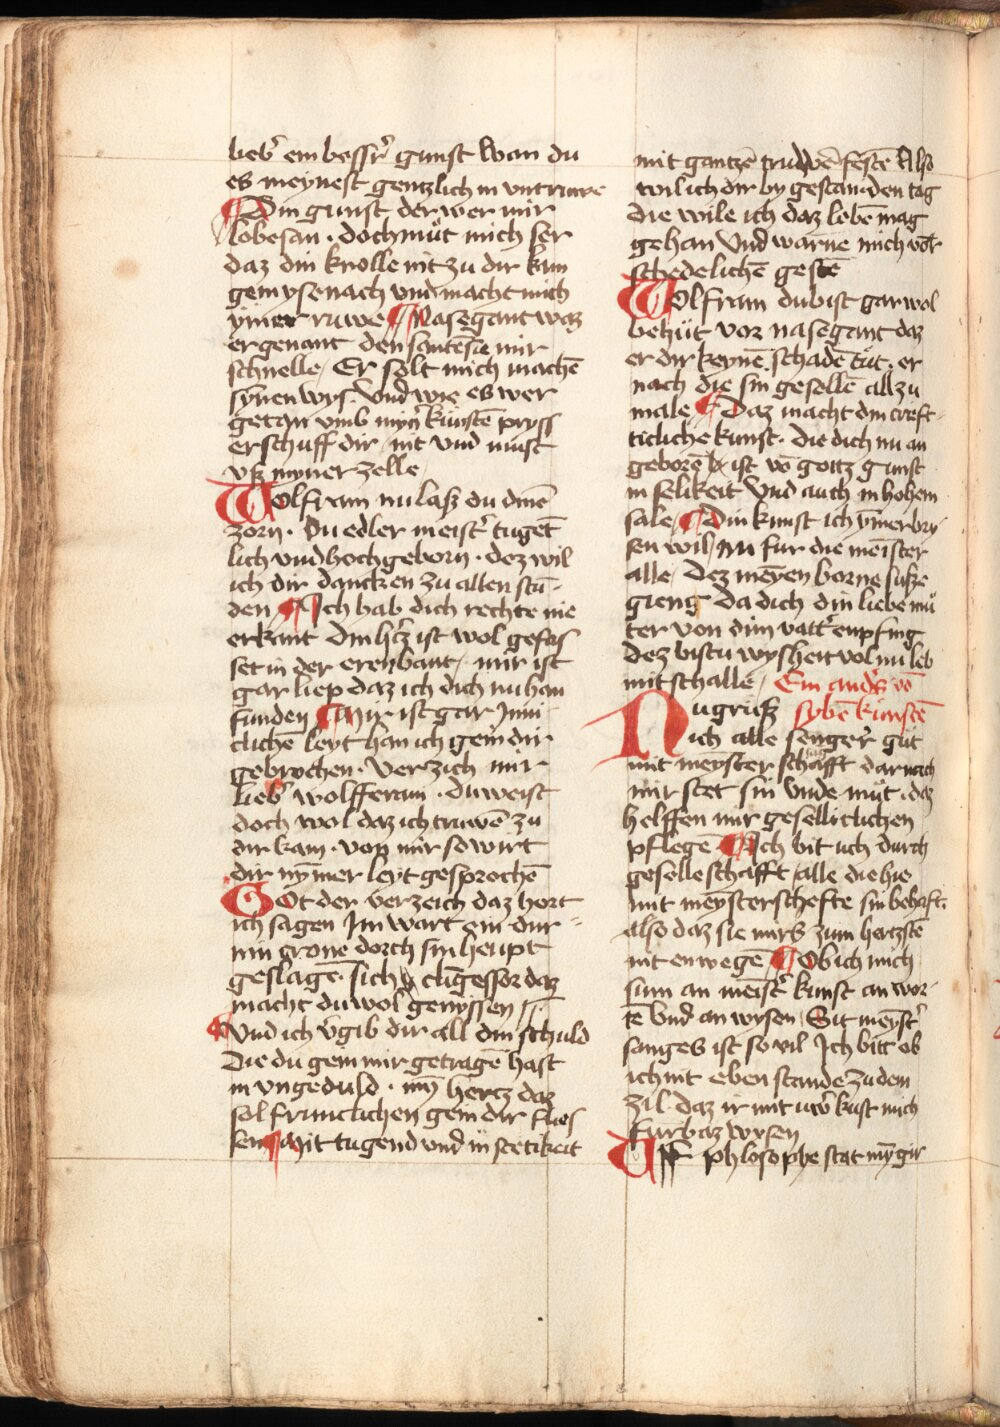 lieb᷑ em bessr᷑ gunst wan du
es meynest gentzlich in vntruwe
Din gunst der wer mir
lobesan · doch mut mich ser
daz din knolle nit zu dir kam
gemysenach vnd macht mich
ymer ruwe Naszgant waz
er genant den santes tu mir
schnelle / Er solt mich machē
synen wys · Vnd wie es wer
getan vmb myn᷑ künstē pryss
er schuff dir / nit vnd must
vß myner zelle
Wolfram nu laß du dinē
zorn · Du edler meist᷑ tugēt
lich vnd hoch geborn · dez wil
ich dir dancken zu allen stū-
den Ich hab dich rechte nie
erkant din h᷑tz ist wol gefas
set in der eren bant / mir ist
gar liep daz ich dich nu han
funden Mir ist gar Inni
clichē leyt han ich gein dir
gebrochen · Verzich mir
lieb᷑ wolfferam · du weist
doch wol daz ich truwē zu
dir kam · von mir so wirt
dir nȳmer leyt gesprochē
Got der verzeich daz hort
ich sagen Im wart ein dur-
nin crone dorch sin heupt
geslagē · sich clīgessor daz
macht du wol genyssen /
Vnd ich v᷑gib dir all din schuld
Die du gein mir getragē hast
in vngeduld · mȳ hertz daz
sol fruntlichen gein dir flies
sen Mit tugend vnd in stetikeit
mit gantzē truwē festē Also
wil ich dir by gestan · den tag
die wile ich daz lebē mag
gehan Vnd warne mich vor
schedelichē gestē
Wolfram du bist gar wol
behüt vor nasegant daz
er dir keynē schadē tüt · er
noch die sin gesellē all zu
male Daz macht din creft-
ticliche kunst · die dich nu an
geborē ist vō gottz gunst
in selikeit Vnd auch in hohem
sale / Din kunst ich ȳmer bry
sen wil / nu fur die meister
alle / dez meyen borne suße
gieng da dich din liebe mu
ter von dim vatt᷑ enpfing
dez bistu wysheit vol nu leb
mit schalle / Ein and᷑s vō
sybē künstē
Nu grüß
ich alle senger᷑ güt
mit meyster schafft dar nach
mir stet sin vnde müt · daz
helffen mir geselliclichen
pflegē Ich bit uch durch
geselleschafft / alle die hie
mit meysterschefte sin behaft·
also daz sie mirs zum hertzstē
nit enwegē Ob ich mich
sum an meist᷑ kunst an wor-
te vnd an wysen / Sit meyst᷑
sanges ist so vil Ich bitt ob
ich nit eben stande zu dem
zil · daz ir mit uw᷑ kust mich
furbaz wysen
Vff phlosophe stat mȳ gir